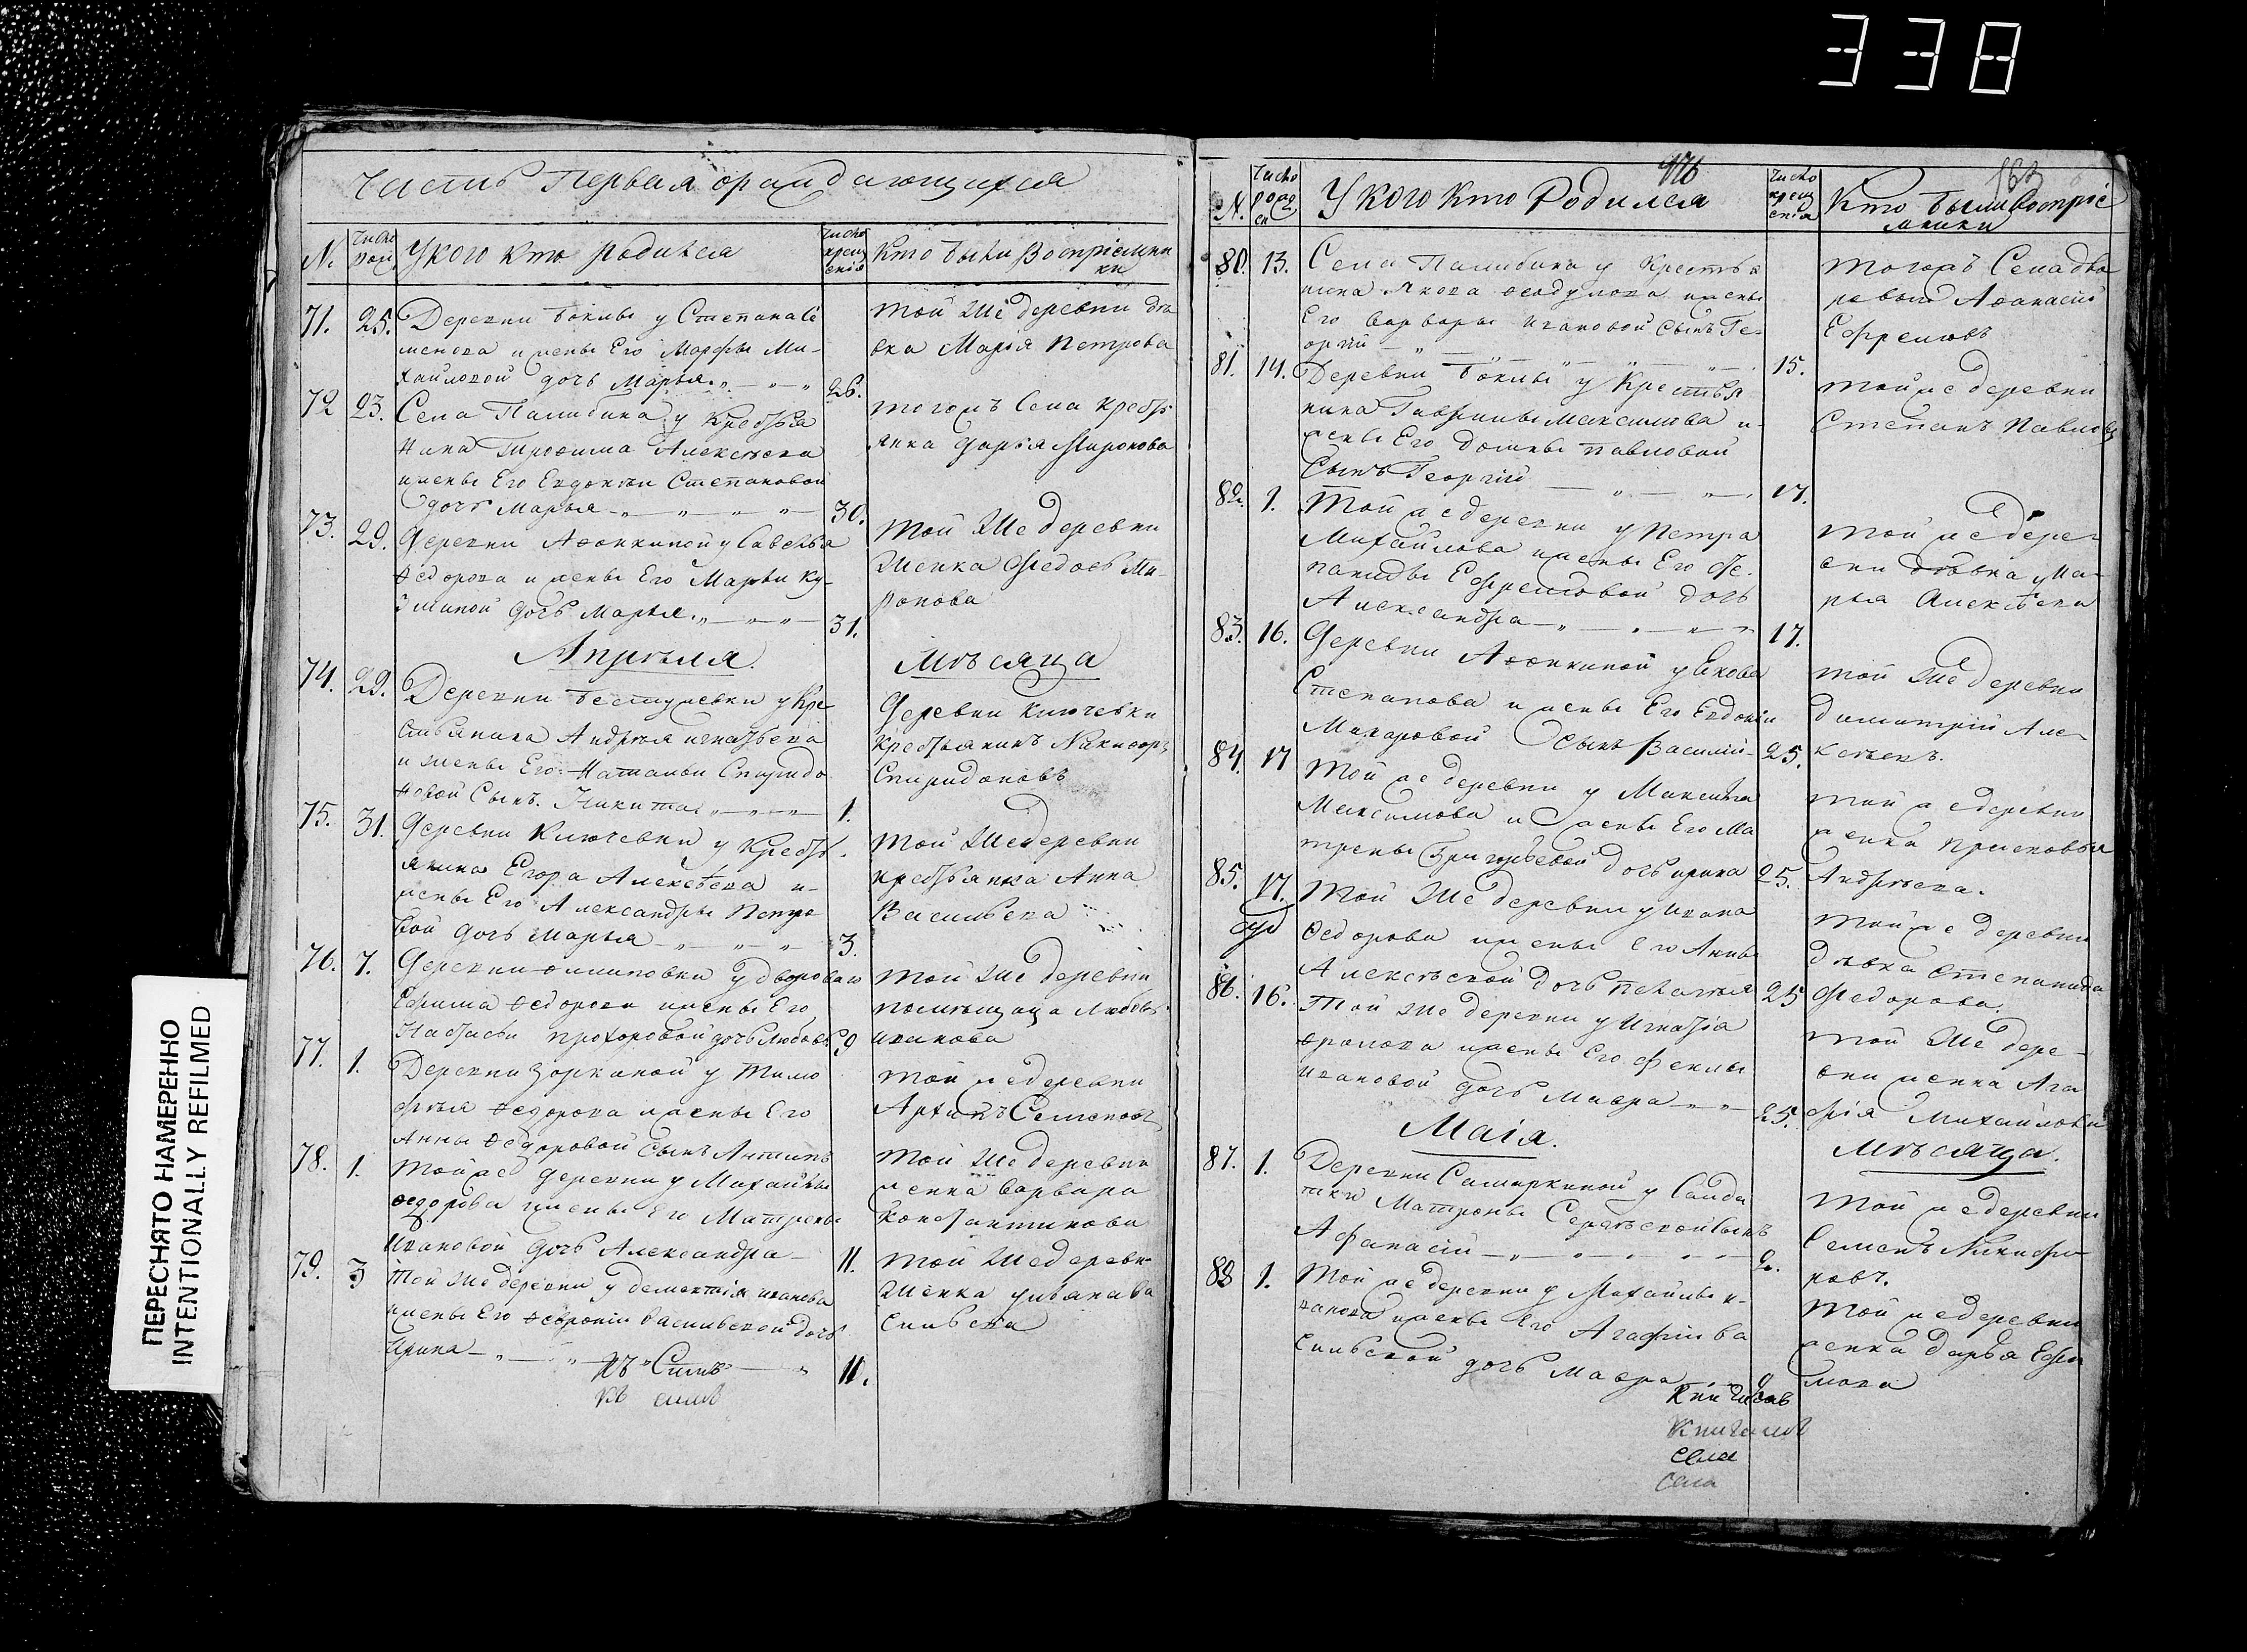 338
Часть Первая ораждающихся
№
Число рожд
У кого кто родился
Число крещения
Кто были восприемники
71. 25. Деревни Токмы у Степана Се
менова и жены Его Марфы Ми-
хайловой дочь Марья 26.
Той Же деревни дѣ
вка Марія Петрова
72 23. Села Памибина у Крестья
нина Трофима Алексѣева
и жены Его Евдокѣи Степановой
дочь Марья 30.
тогожъ Села крестья
янка Дарья Миронова
73. 29. Деревни Афонкиной у Савелья
Ѳедорова и жены Его Марьи Ку-
зминой дочь Марья 31.
Той Же деревни
Женка Федосья Ми-
ронова
Апрѣля Мѣсяца
74. 29. Деревни Бестужевки у Кре
стьянина Андрѣя Игнатьева
и жены Его Натальи Спиридо
новой Сынъ Никита 1.
Деревни Ключевки
крестьянинъ Никифоръ
Спиридоновъ
75. 31. Деревни Ключевки у Кресть
янина Егора Алексѣева и
жены Его Александры Петро
вой дочь Марья 3.
Той Же деревни
крестьянка Анна
Васильева
76. 7. Деревни Филиповки у двороваго
Ефима Ѳедорова и жены Его
Настасьи Прохоровой дочь Любовь 9
Той Же деревни
помѣщица Любовь
Иванова
77. 1. Деревни Зоркиной у Тимо
фѣя Ѳедорова и жены Его
Анны Ѳедоровой сынъ Антипъ
Той же деревни
Архипъ Семеновъ
78. 1. Той же деревни у Михайлы
Ѳедорова и жены Его Матрены
Ивановой дочь Александра 11.
Той Же деревни
женка Варвара
Константинова
79. 3 Той Же деревни у Дементія Иванова
и жены Его Ѳевроніи Васильевой дочь
Ирина 11.
Той Же деревни
Женка Ульяна Ва
сильева
къ Силѣ
къ силѣ
976
163
№
Число рожд
У кого кто Родился
Число крещенія
Кто были Воспріе
мники
80. 13. Села Памибина у Крестья
нина Якова Ѳеодулова и жены
Его Варвары Ивановой Сынъ Ге-
оргій 15.
тогожъ Села дво
ровый Афанасій
Ефремовъ
81. 14. Деревни Токмы у Крестья
нина Гаврилы Максимова и
жены Его Домны Павловой
Сынъ Георгій 17.
Той же деревни
Степанъ Павловъ
82. 1. Той же деревни у Петра
Михайлова и жены Его Сте
паниды Ефремовой дочь
Александра 17.
Той же дере-
вни дѣвка Ма-
рья Алексѣева
83. 16. Деревни Афонкиной у Якова
Степанова и жены Его Евдокіи
Макаровой Сынъ Василій 25.
Той Же деревни
Димитрій Але-
ксѣевъ.
84. 17 Той же деревни у Максима
Максимова и жены Его Ма
трены Григорьевой дочь Ирина 25.
Той же деревни
женка Прасковья
Андрѣева.
85. 17. Той Же деревни у Ивана
Ѳедорова и жены Его Анны
Алексѣевой дочь Пелагѣя 25
Той же деревни
дѣвка Степанида
Федорова.
86. 16. Той же деревни у Игнатія
Фролова и жены Его Феклы
Ивановой дочь Мавра 25.
Той Же дере-
вни женка Ага
фія Михайлова
Маія. Мѣсяца.
87. 1. Деревни Самаркиной у Солда
тки Матроны Сергѣевой Сынъ
Афанасій 2.
Той же деревни
Семенъ Никифо-
ровъ.
88 1. Той же деревни у Михайлы И-
ванова и жены Его Агафьи Ва
сильевой дочь Мавра 9
Той же деревни
женка Дарья Ефи
мова
Книгъ
Села
Села
ПЕРЕСНЯТО НАМЕРЕННО
INTENTIONALLY REFILMED